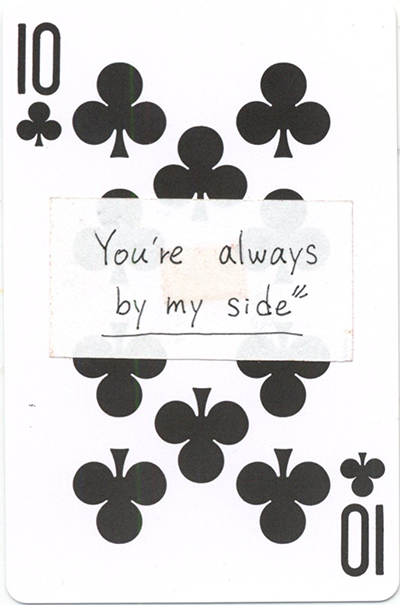 10
You're always
by my side"
10